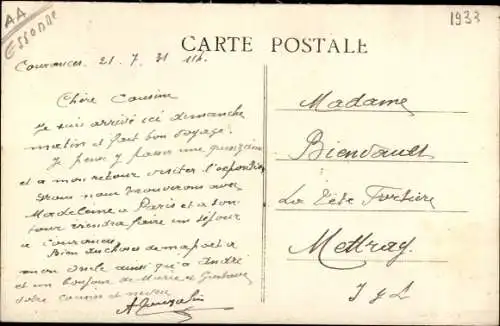 AA
ESSONNE
1933
CARTE POSTALE
Courances 21.7.31 11h.
Chère Cousine
Je suis arrivé ici dimanche
matin et fait bon voyage.
Je pense y passer une quinzaine
et a mon retour visiter l'exposition
Nous nous trouverons avec
Madeleine a Paris et a son
tour viendra faire un séjour
a Courances
Bien des choses de ma part a
mon oncle ainsi qu'a André
et un bonjour de Marie et Gustave
votre cousin et neveu
Madame
Bienvault
La Tête Fortière
Mettray
I & L